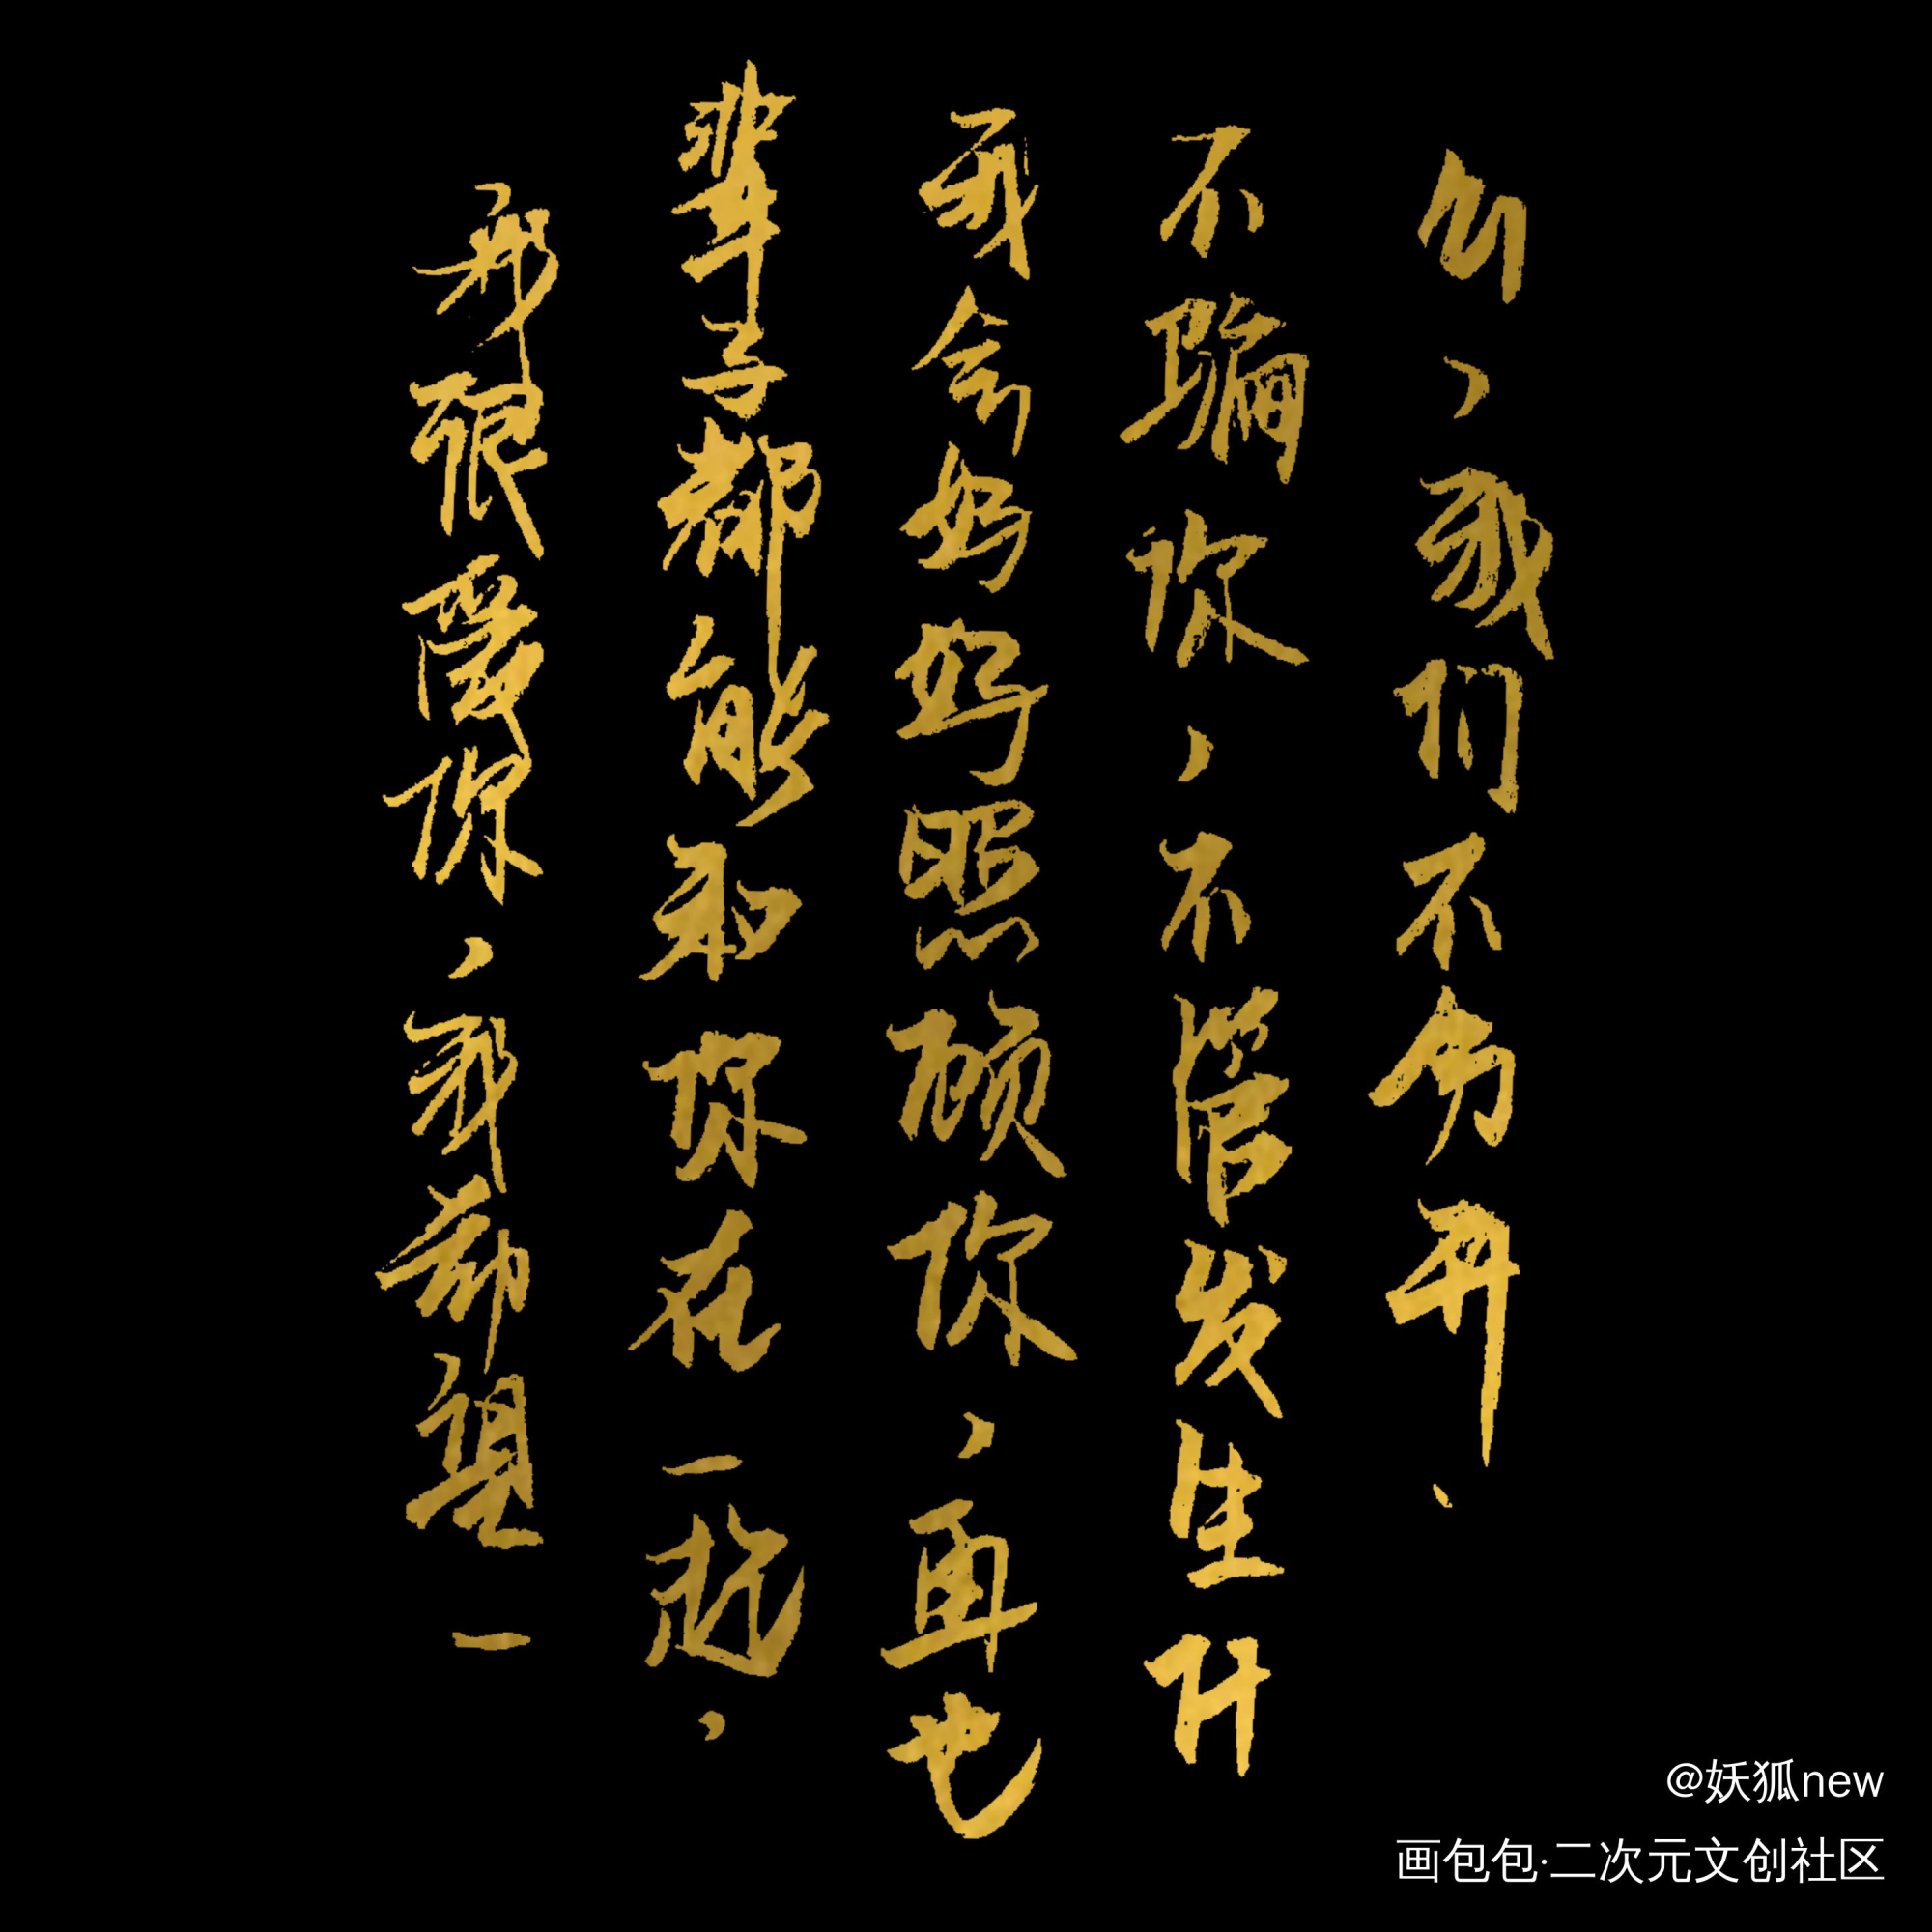 我很愛你,我希望一
辈子都能和你在一起,
我会好好照顾你,再也
不骗你,不管发生什
么,我们不分开、
@妖狐new
画包包·二次元文创社区